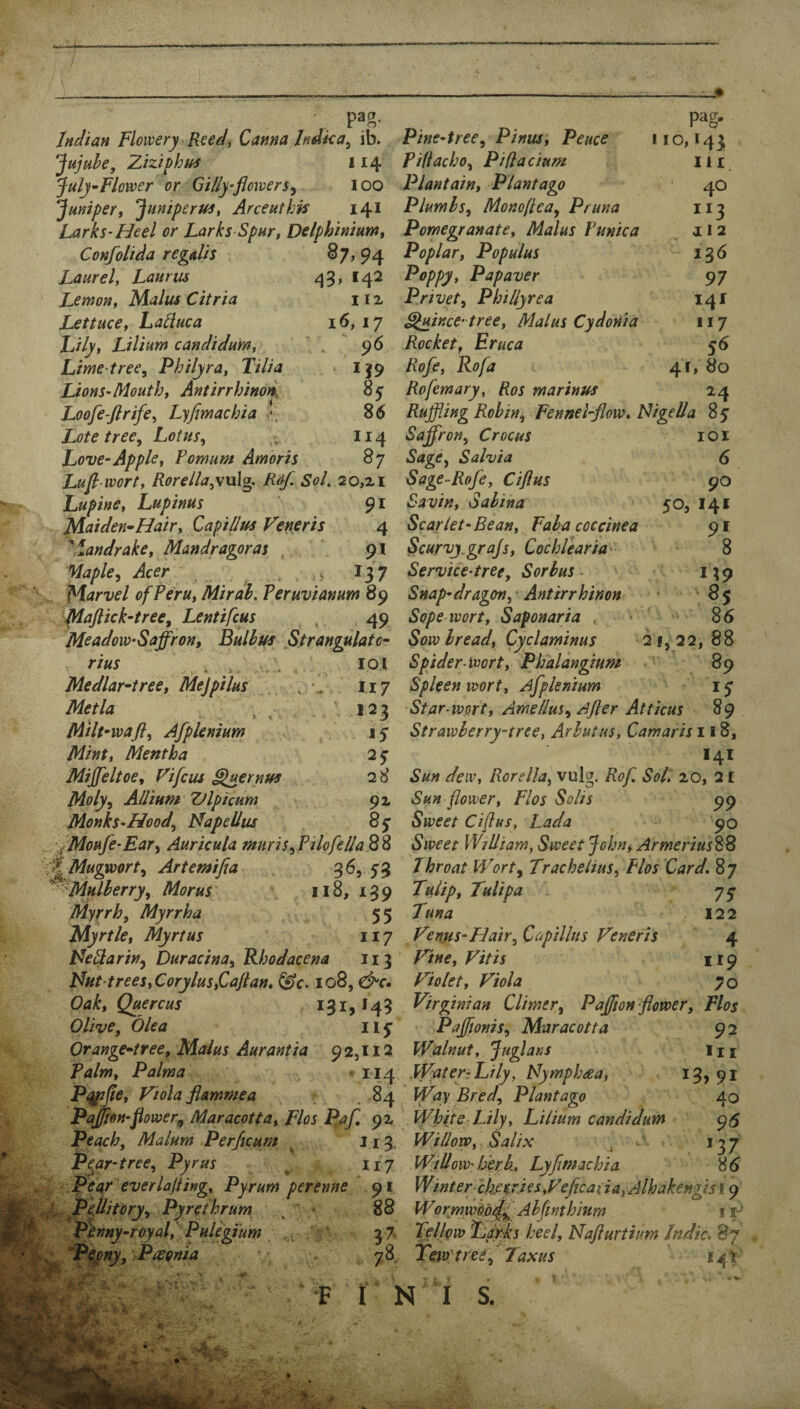 pag.
Indian Flowery Reed, Canna Indica, ib.
Jujube, Ziziphus 114
July-Flower or Gilly-flowers, 100
Juniper, Juniperus, Arceuthis 141
Larks-Heel or Larks-Spur, Delphinium,
Conſolida regalis 87, 94
Laurel, Laurus 43, 142
Lemon, Malus Citria 112
Lettuce, Lactuca 16, 17
Lily, Lilium candidum, 96
Lime-tree, Philyra, Tilia 139
Lions-Mouth, Antirrhinon, 85
Looſe-ſtrife, Lyſimachia 86
Lote tree, Lotus, 114
Love-Apple, Pomum Amoris 87
Luſt-wort, Rorella, vulg. Roſ. Sol. 20,21
Lupine, Lupinus 91
Maiden-Hair, Capillus Veneris 4
Mandrake, Mandragoras 91
Maple, Acer 137
Marvel of Peru, Mirab. Peruvianum 89
Maſtick-tree, Lentiſcus 49
Meadow-Saffron, Bulbus Strangulato-
rius 101
Medlar-tree, Meſpilus 117
Metla 123
Milt-waſt, Aſplenium 15
Mint, Mentha 25
Miſſeltoe, Viſcus Quernus 28
Moly, Allium Ulpicum 92
Monks-Hood, Napellus 85
Mouſe-Ear, Auricula muris, Piloſella 88
Mugwort, Artemiſia 36, 53
Mulberry, Morus 118, 139
Myrrh, Myrrha 55
Myrtle, Myrtus 117
Nectarin, Duracina, Rhodacena 113
Nut-trees, Corylus, Caſtan. &c. 108, &c.
Oak, Quercus 131, 143
Olive, Olea 115
Orange-tree, Malus Aurantia 92,112
Palm, Palma 114
Panſie, Viola flammea 84
Paſſion-flower, Maracotta, Flos Paſ. 92
Peach, Malum Perſicum 113
Pear-tree, Pyrus 117
Pear everlaſting, Pyrum perenne 91
Pellitory, Pyrethrum 88
Penny-royal, Pulegium 37
Peony, Pæonia 78
pag.
Pine-tree, Pinus, Peuce 110, 143
Piſtacho, Piſtacium 111
Plantain, Plantago 40
Plumbs, Monoſtea, Pruna 113
Pomegranate, Malus Punica 112
Poplar, Populus 136
Poppy, Papaver 97
Privet, Phillyrea 141
Quince-tree, Malus Cydonia 117
Rocket, Eruca 56
Roſe, Roſa 41, 80
Roſemary, Ros marinus 24
Ruffling Robin, Fennel-flow. Nigella 85
Saffron, Crocus 101
Sage, Salvia 6
Sage-Roſe, Ciſtus 90
Savin, Sabina 50, 141
Scarlet-Bean, Faba coccinea 91
Scurvy graſs, Cochlearia 8
Service-tree, Sorbus 139
Snap-dragon, Antirrhinon 85
Sope wort, Saponaria 86
Sow bread, Cyclaminus 21, 22, 88
Spider-wort, Phalangium 89
Spleen wort, Aſplenium 15
Star-wort, Amellus, Aſter Atticus 89
Strawberry-tree, Arbutus, Camaris 118,
141
Sun dew, Rorella, vulg. Roſ. Sol. 20, 21
Sun flower, Flos Solis 99
Sweet Ciſtus, Lada 90
Sweet William, Sweet John, Armerius 88
Throat Wort, Trachelius, Flos Card. 87
Tulip, Tulipa 75
Tuna 122
Venus-Hair, Capillus Veneris 4
Vine, Vitis 119
Violet, Viola 70
Virginian Climer, Paſſion flower, Flos
Paſſionis, Maracotta 92
Walnut, Juglans 111
Water-Lily, Nymphæa, 13, 91
Way Bred, Plantago 40
White Lily, Lilium candidum 96
Willow, Salix 137
Willow-herb, Lyſimachia 86
Winter-cherries, Veſicaria, Alhakengis 19
Wormwood, Abſinthium 11
Yellow Larks heel, Naſturtium Indic. 87
Yew tree, Taxus 141
FINIS.